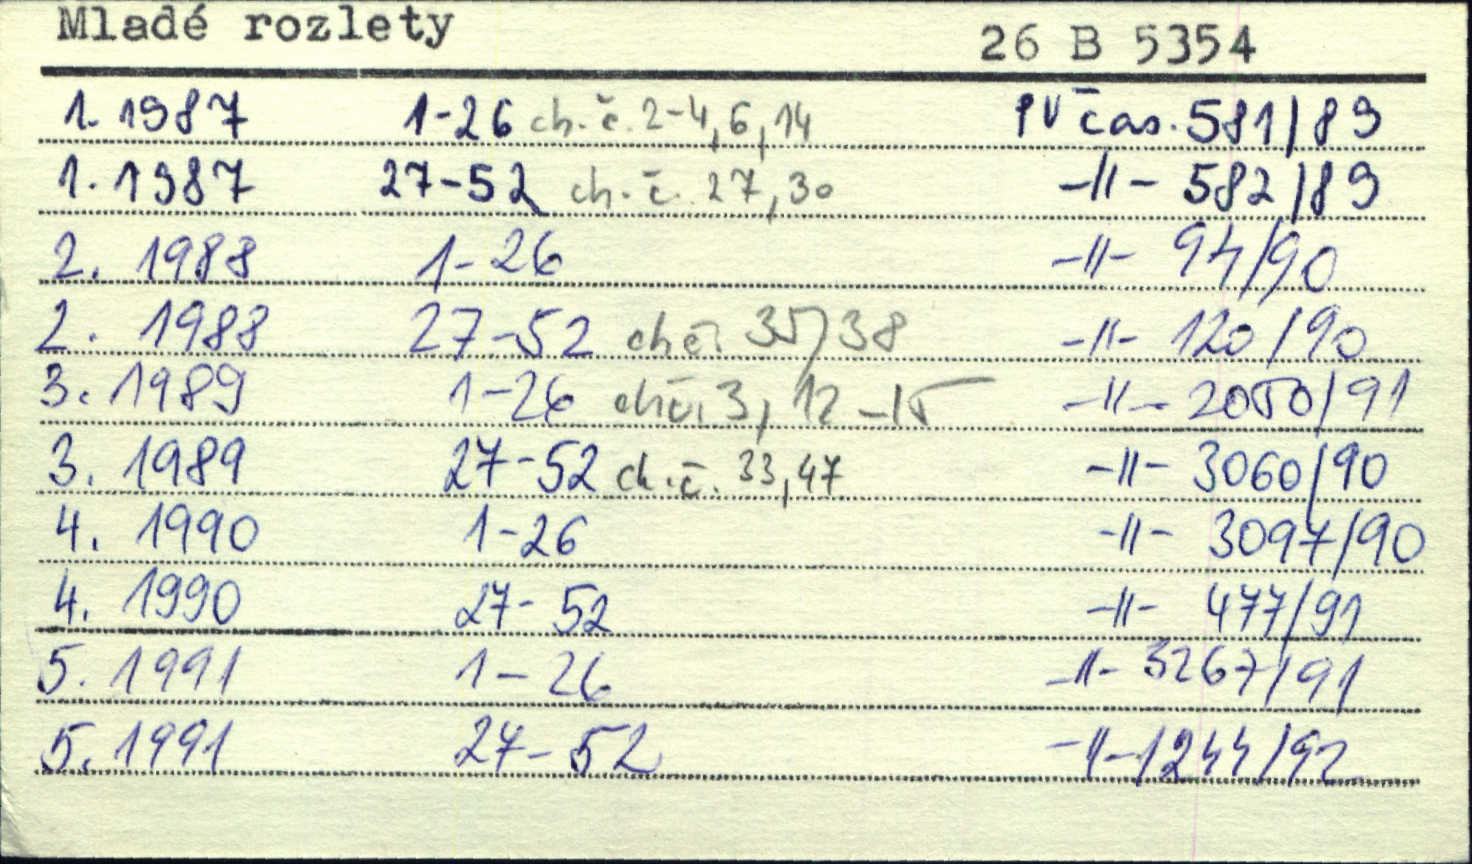 Mladé rozlety 26 B 5354
1. 1987 1-26 ch. č. 2-4, 6, 14 PV čas. 581/89
1. 1987 27-52 ch. č. 27, 30 -||- 582/89
2. 1988 1-26 -||- 94/90
2. 1988 27-52 ch č. 35, 38 -||- 120/90
3. 1989 1-26 ch č. 3, 12-15 -||- 2050/91
3. 1989 27-52 ch. č. 33, 47 -||- 3060/90
4. 1990 1-26 -||- 3097/90
4. 1990 27-52 -||- 477/91
5. 1991 1-26 -||- 3267/91
5. 1991 27-52 -||- 1244/92